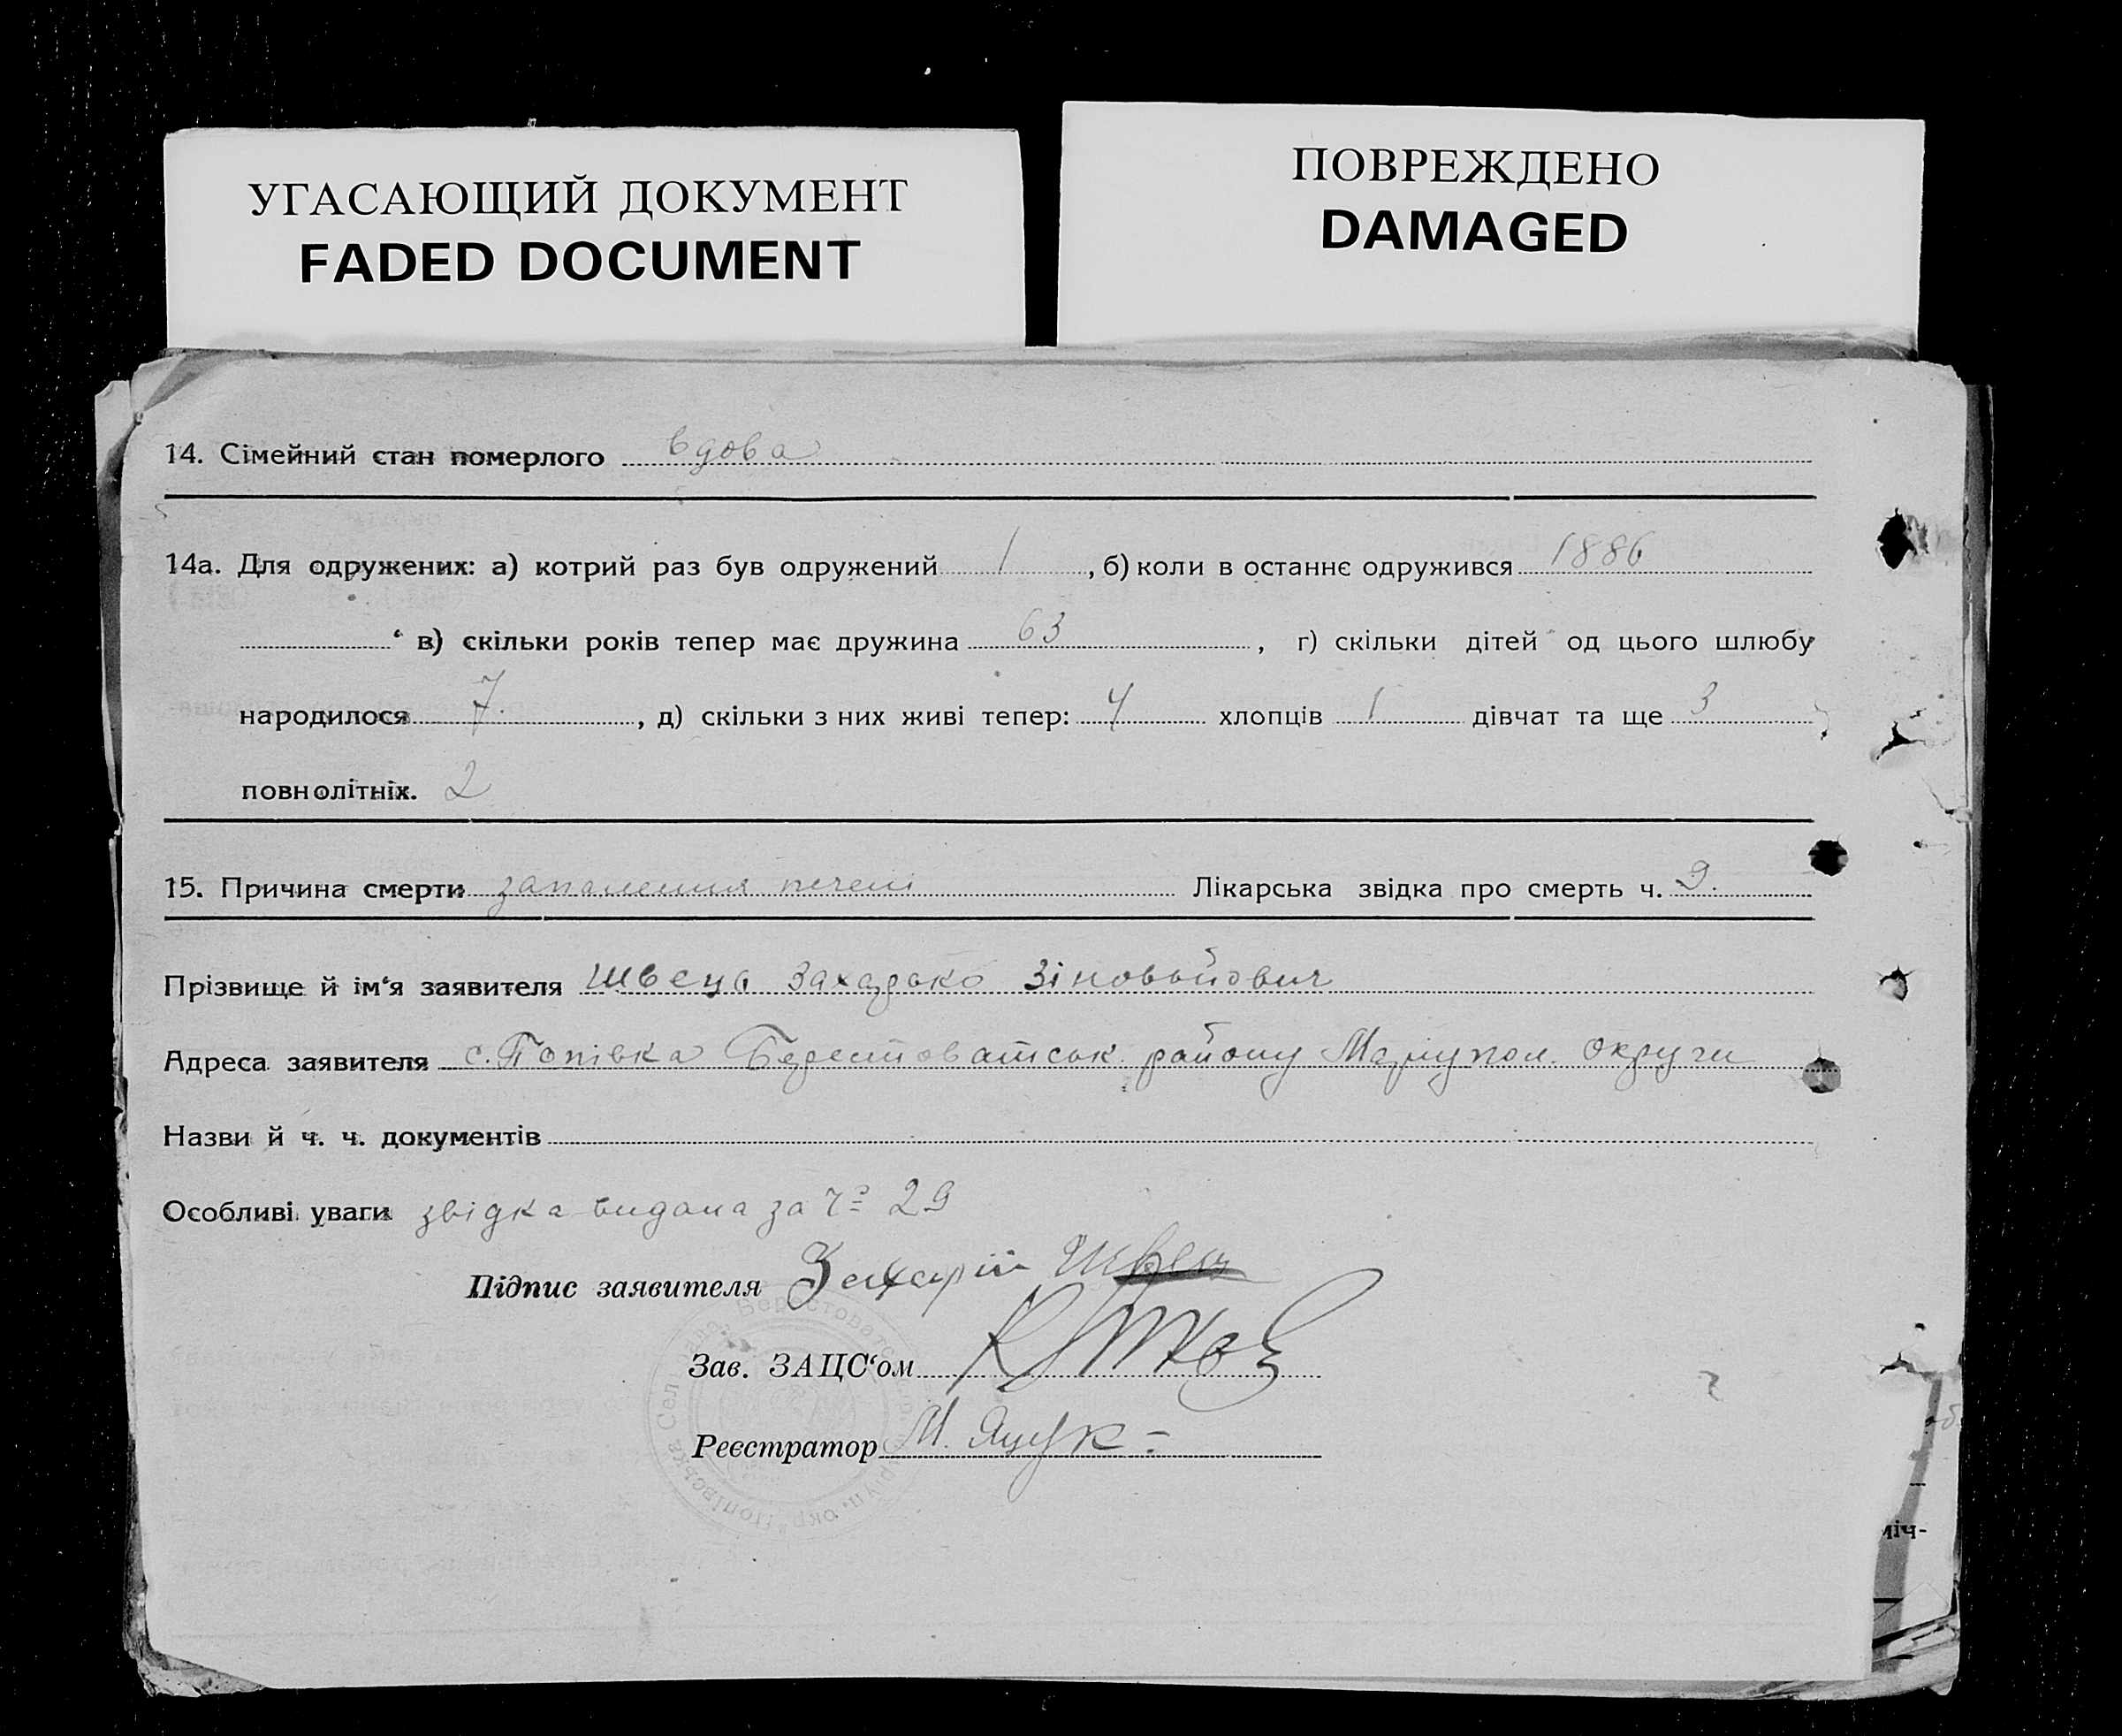 УГАСАЮЩИЙ ДОКУМЕНТ
FADED DOCUMENT
ПОВРЕЖДЕНО
DAMAGED
14. Сімейний стан померлого вдова
14а. Для одружених: а) котрий раз був одружений 1, б) коли в останнє одружився 1886
в) скільки років тепер має дружина 63, г) скільки дітей од цього шлюбу
народилося 7, д) скільки з них живі тепер: 4 хлопців 1 дівчат та ще 3
повнолітніх. 2
15. Причина смерти запалення печені Лікарська звідка про смерть ч. 9.
Прізвище й ім‘я заявителя Швець Захарько Зіновьйович
Адреса заявителя с. Попівка Берестоватськ. району Маріупол. округи
Назви й ч. ч. документів
Особливі уваги звідка видана за 29
Підпис заявителя Захарій Швец
Зав. ЗАЦС‘ом
Реєстратор М. Яцук
міч-